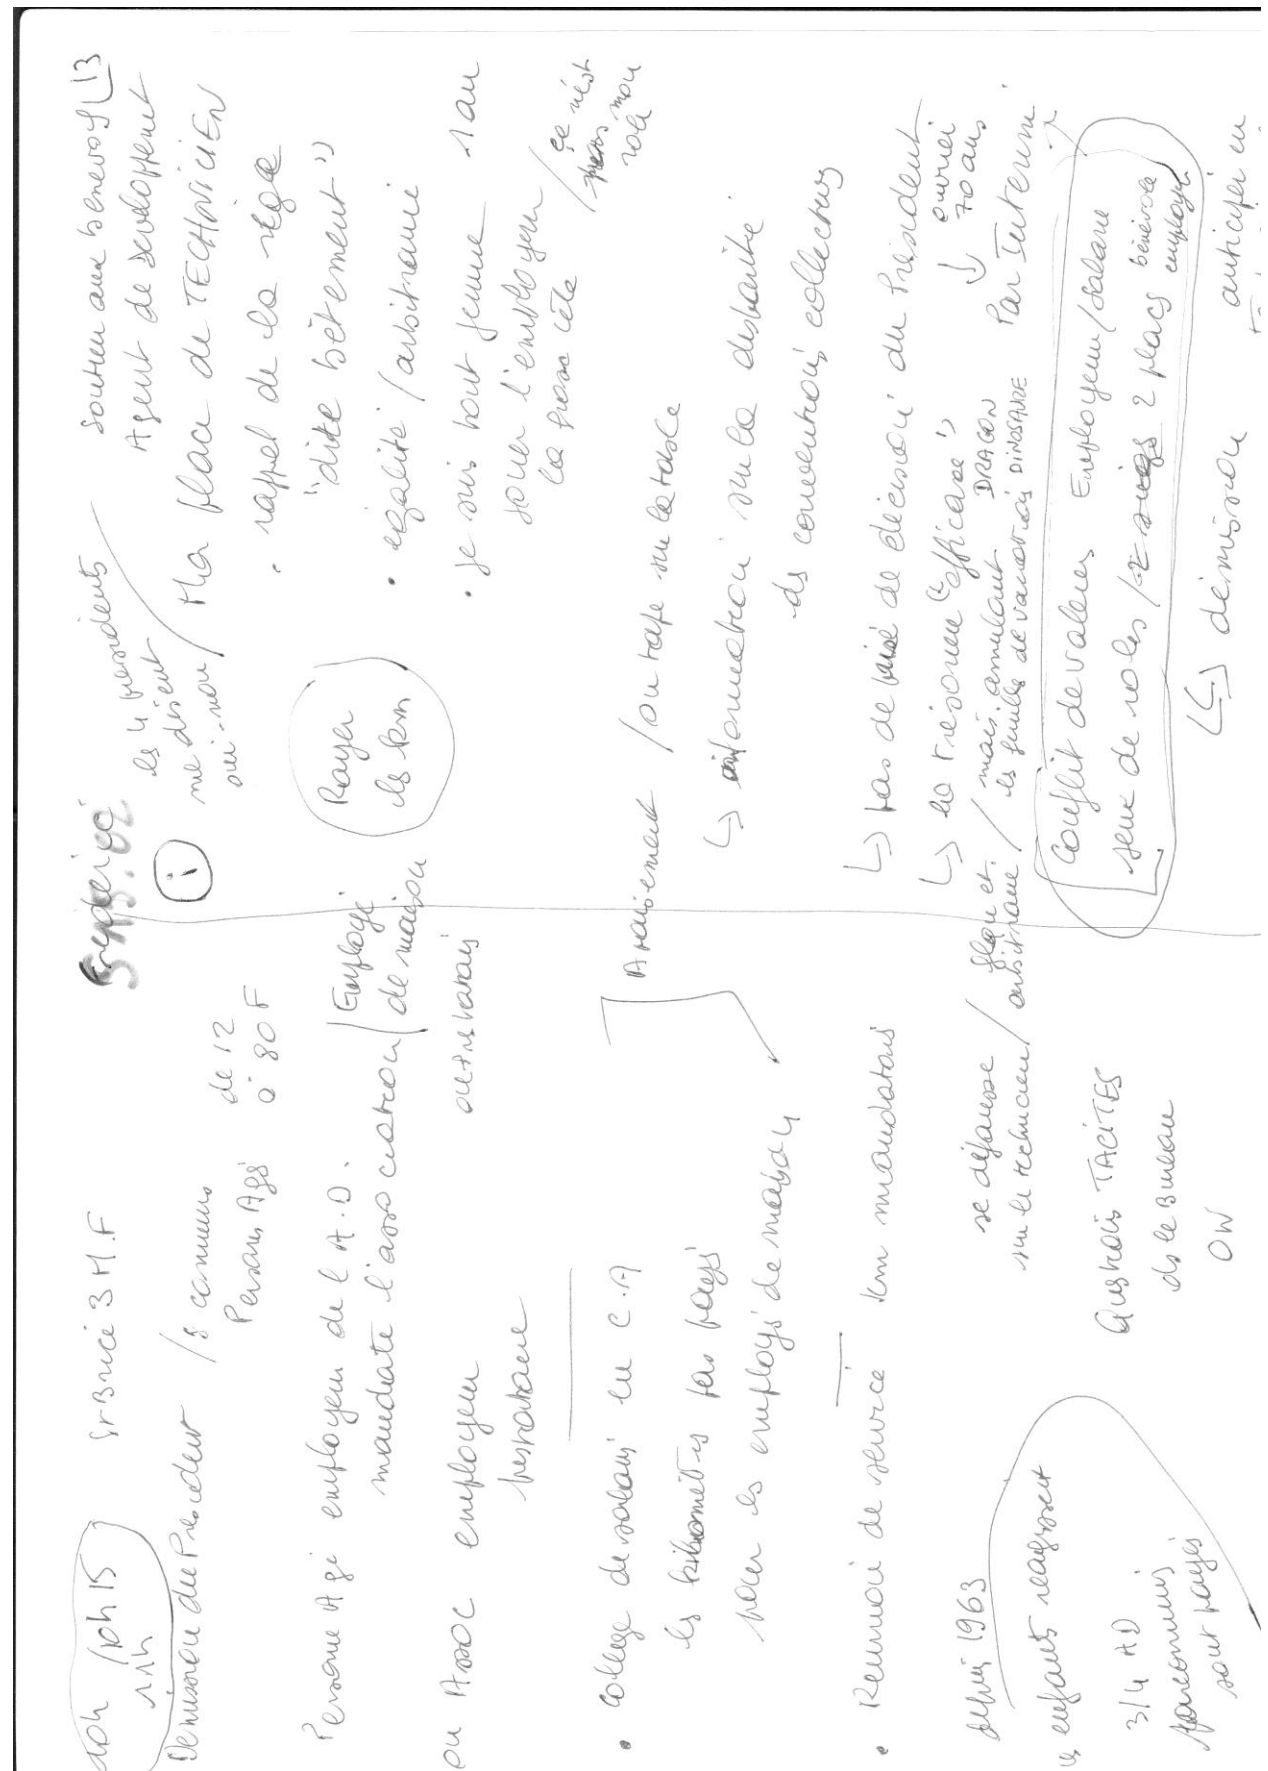 10h /10h15
11h
St Brice 3 M.F
Démission du Président /8 communes
Personnes Agés
de 12
à 80 F
Personne Agé employeur de l'A.D.
mandate l'association / Employé
de maison
ou Assoc employeur
prestataire
• College de salariés en C.A
les kilomètres pas payés
pour les employés de maison
• Réunion de service
km mandatais
depuis 1963
les enfants réagissent
3/4 AD
sont payés
se défausse
sur le technicien /
flou et
arbitraire /
Questions TACITES
ds le Bureau
OW
Frédérique
i
les 4 présidents
me disent
oui-non /
Soutien aux bénévoles 13
Agent de développent
Ma place de TECHNICIEN
• rappel de la règle
"dite bêtement"
• égalité / arbitraire
Payer
les km
• je suis tout jeune 1 an
jouer l'employeur / ce n'est
pas mon
role
la passe cela
Apaisement / on tape sur la table
↳ information sur la disparité
ds conventions collectives
↳ pas de prise de décision du Président
↓ ouvrier
70 ans
↳ la Trésorière "efficace"
mais annulant DRAGON
les feuilles de vacations DINOSAURE
Par Interim
Conflit de valeurs Employeur/Salarié
sens de roles / 2 sièges 2 places bénévole
employeur
↳ démission
anticiper en